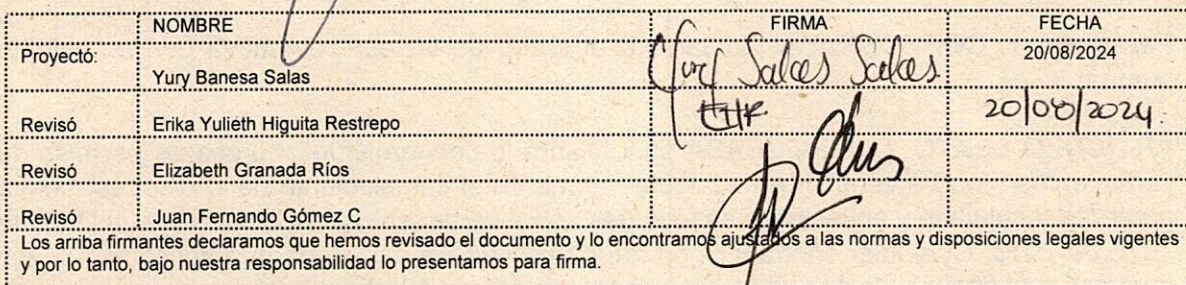 NOMBRE FIRMA FECHA
Proyectó: Yury Banesa Salas Yury Salas Salas 20/08/2024
Revisó Erika Yulieth Higuita Restrepo EHR 20/08/2024.
Revisó Elizabeth Granada Ríos
Revisó Juan Fernando Gómez C
Los arriba firmantes declaramos que hemos revisado el documento y lo encontramos ajustados a las normas y disposiciones legales vigentes
y por lo tanto, bajo nuestra responsabilidad lo presentamos para firma.